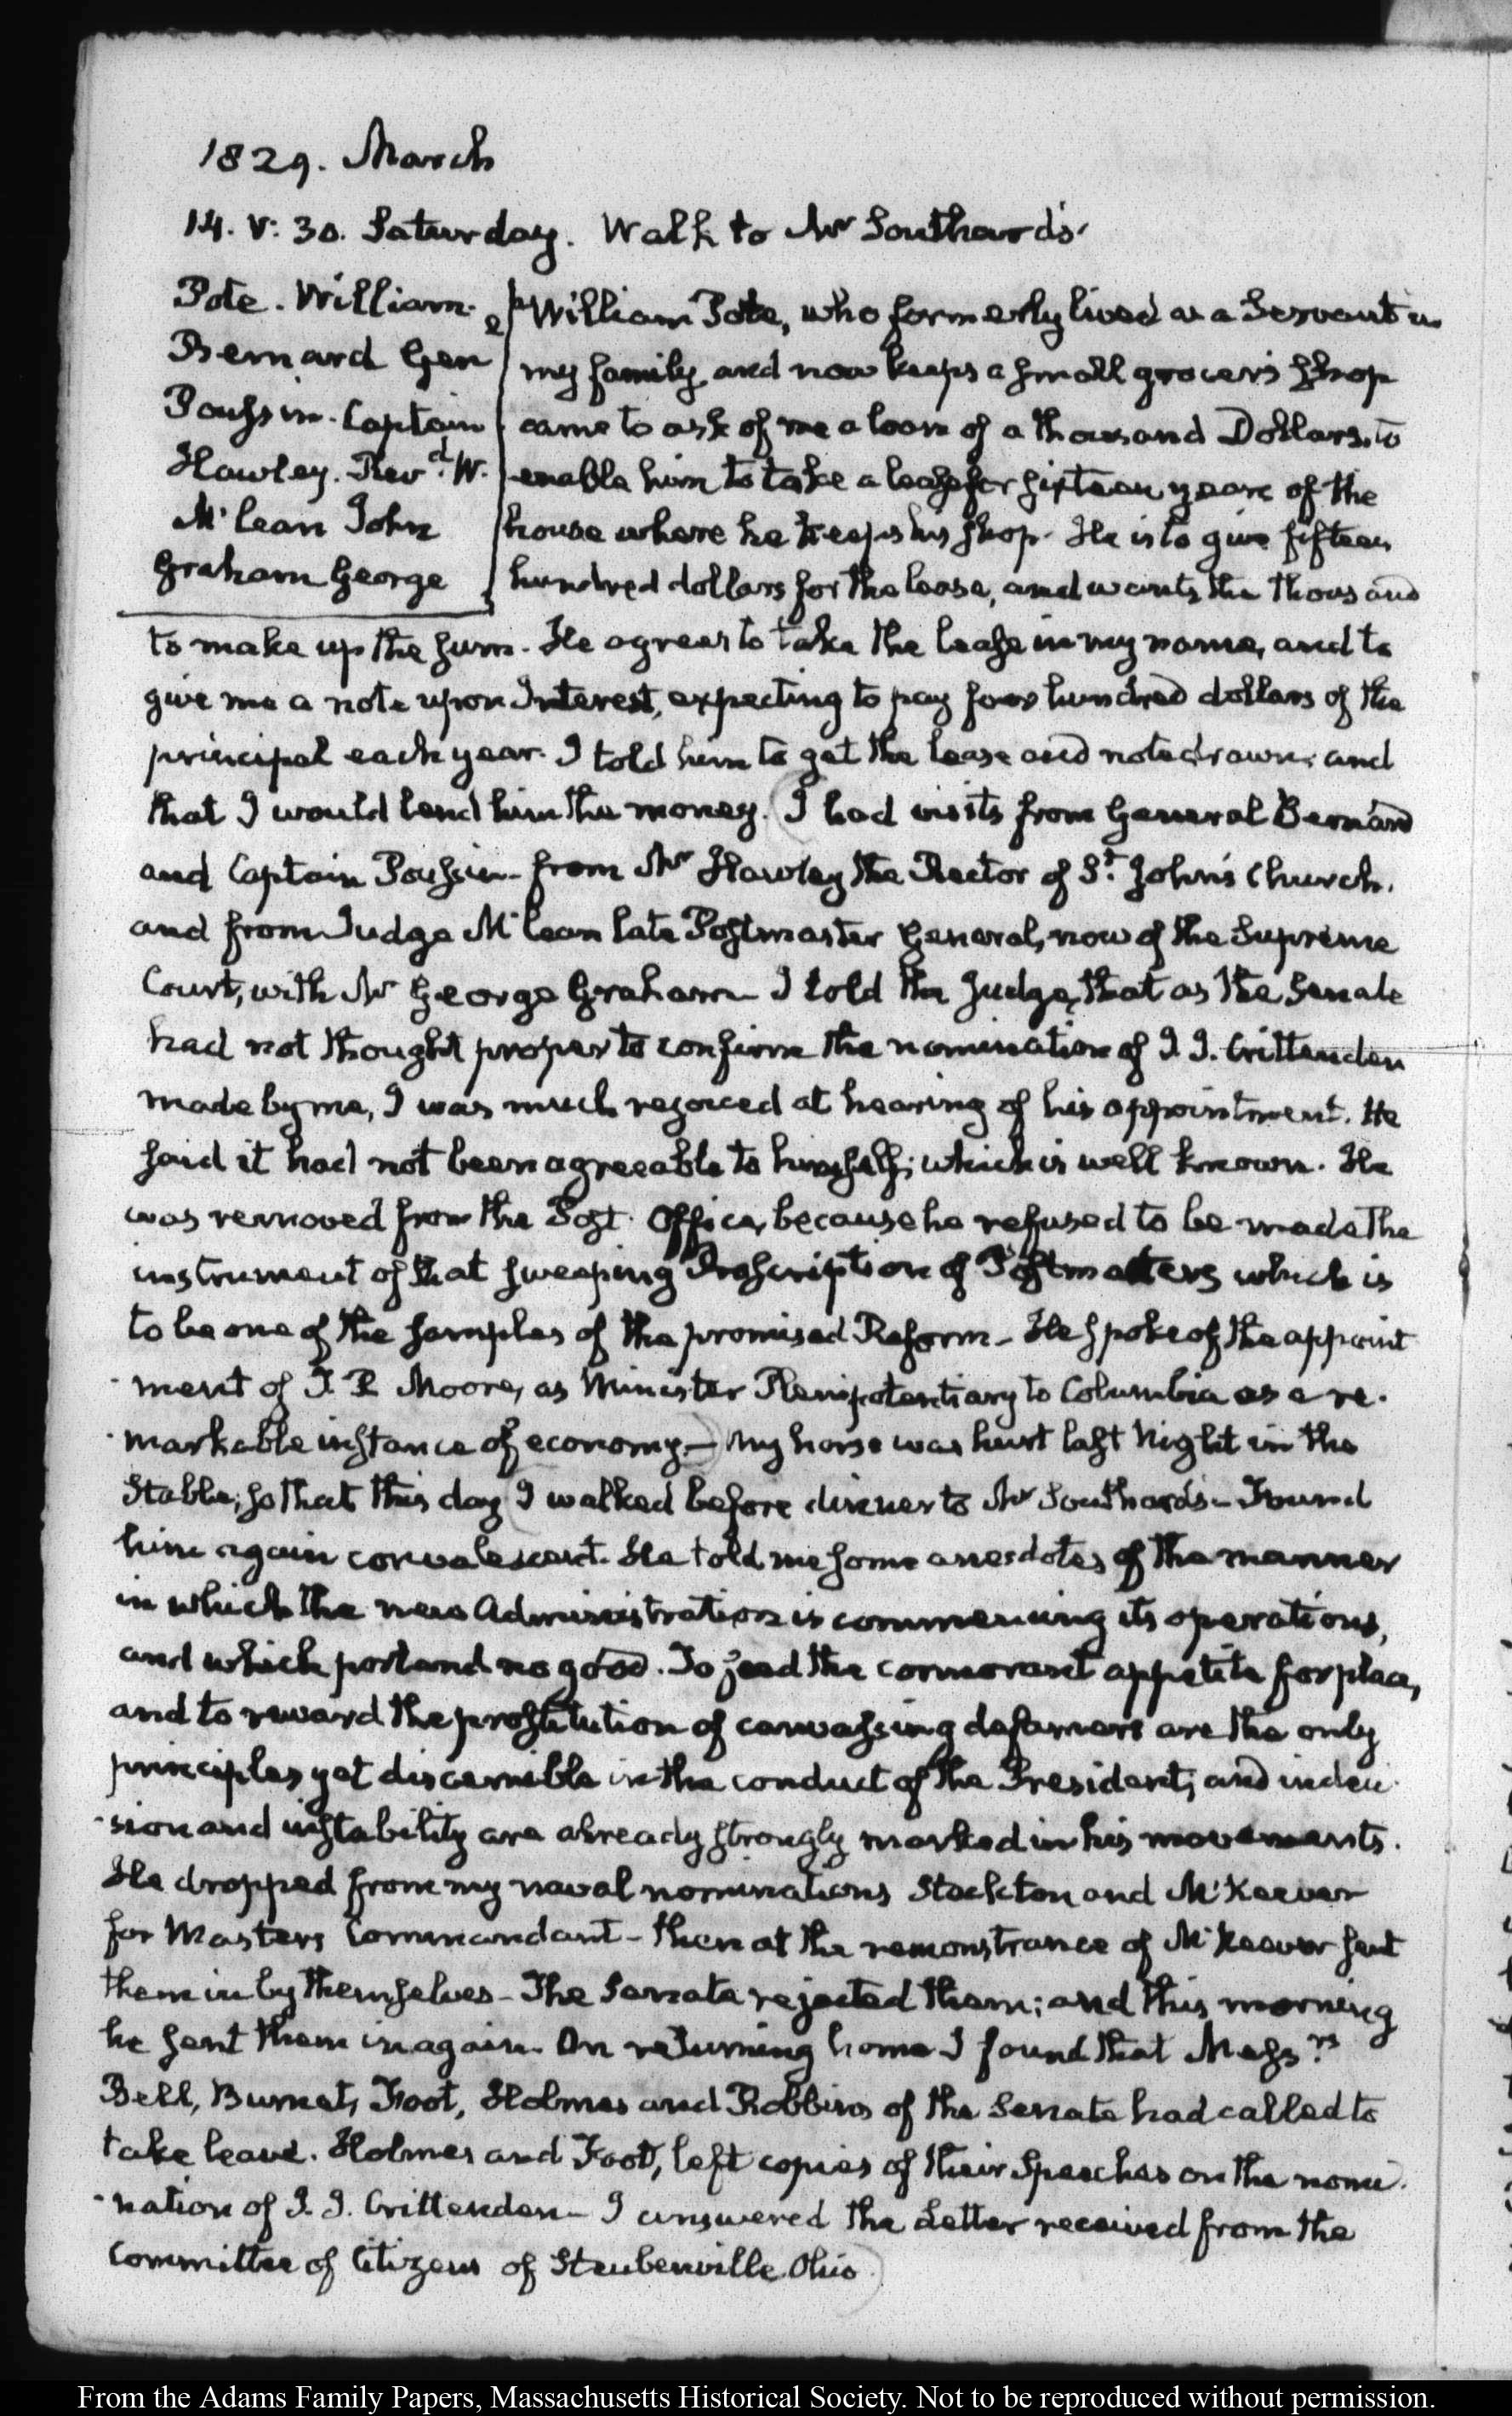 1829. March
14. V: 30. Saturday. Walk to Mr Southard's.
Pote. William.
Bernard Gen
Poussin. Captain
Hawley. Revd. W.
McLean John
Graham George
William Pote, who formerly lived as a Servant in
my family and now keeps a small grocer's shop
came to ask of me a loan of a thousand Dollars, to
enable him to take a lease for sixteen years of the
house where he keeps his shop. He is to give fifteen
hundred dollars for the lease, and wants the thousand
to make up the sum. He agrees to take the lease in my name, and to
give me a note upon Interest, expecting to pay four hundred dollars of the
principal each year. I told him to get the lease and note drawn, and
that I would lend him the money. I had visits from General Bernard
and Captain Poussin - from Mr Hawley the Rector of St. John's Church.
and from Judge McLean late Postmaster General, now of the Supreme
Court, with Mr George Graham - I told the Judge, that as the Senate
had not thought proper to confirm the nomination of J. J. Crittenden
made by me, I was much rejoiced at hearing of his appointment. He
said it had not been agreeable to himself; which is well known. He
was removed from the Post Office, because he refused to be made the
instrument of that sweeping Proscription of Postmasters which is
to be one of the samples of the promised Reform - He spoke of the appoint
ment of T. P. Moore, as Minister Plenipotentiary to Columbia as a re-
markable instance of economy. - My horse was hurt last Night in the
Stable, so that this day I walked before dinner to Mr Southard's - Found
him again convalescent. He told me some anecdotes of the manner
in which the new Administration is commencing its operations,
and which portend no good. To feed the cormorant appetite for place,
and to reward the prostitution of canvassing defamers are the only
principles yet discernible in the conduct of the President; and indeci-
sion and instability are already strongly marked in his movements.
He dropped from my naval nominations Stockton and McKeever
for Masters Commandant - then at the remonstrance of McKeever sent
them in by themselves - The Senate rejected them; and this morning
he sent them in again. On returning home I found that Messrs.
Bell, Burnet, Foot, Holmes and Robbins of the Senate had called to
take leave. Holmes and Foot, left copies of their Speeches on the nomi-
nation of J. J. Crittenden - I answered the Letter received from the
Committee of Citizens of Steubenville Ohio
From the Adams Family Papers, Massachusetts Historical Society. Not to be reproduced without permission.